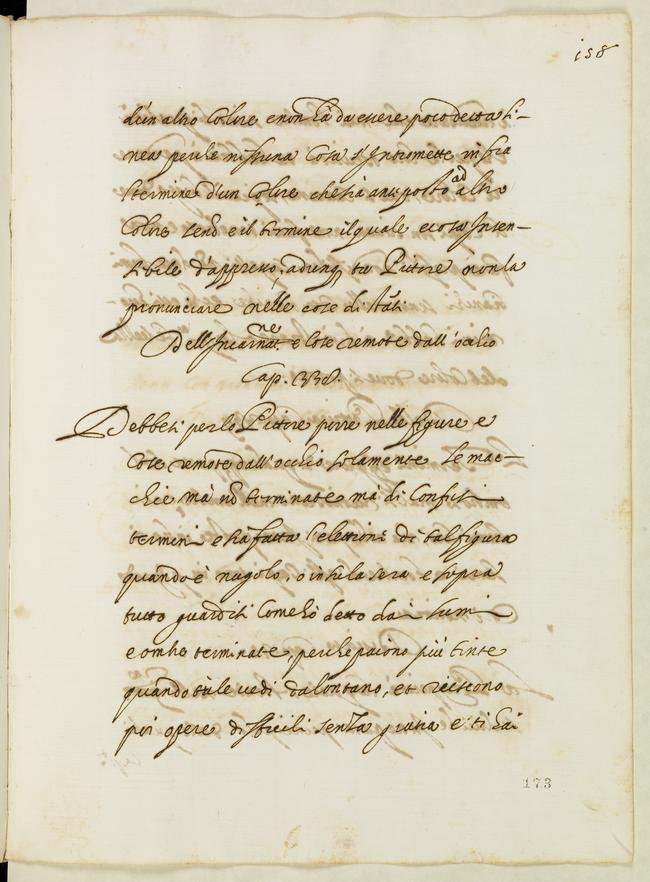 158
d'un altro Colore e non hà da essere poco detta li-
nea perche nissuna Cosa s'Intromette infra
l termine d'un Colore che sia anteposto ad altro
Colore senō e il termine il quale e cosa Insen-
sibile d'appresso, adunq tu Pittore non la
pronunciare nelle cose distāti
Dell'Incarnat.ne e Cose remote dall'occhio
Cap. 338.
Debbesi per lo Pittore porre nelle figure e
Cose remote dall'occhio solamente le mac-
chie mà nō terminate ma di Confusi
termini e sia fatta l'elettione di tal figura
quando è nugolo, o in su la sera e sopra
tutto guardisi Come hò detto dai lumi
e ombre terminate, perche paiono più tinte
quando tù le vedi da lontano, et riescono
poi opere difficili senza gratia e ti hai
173